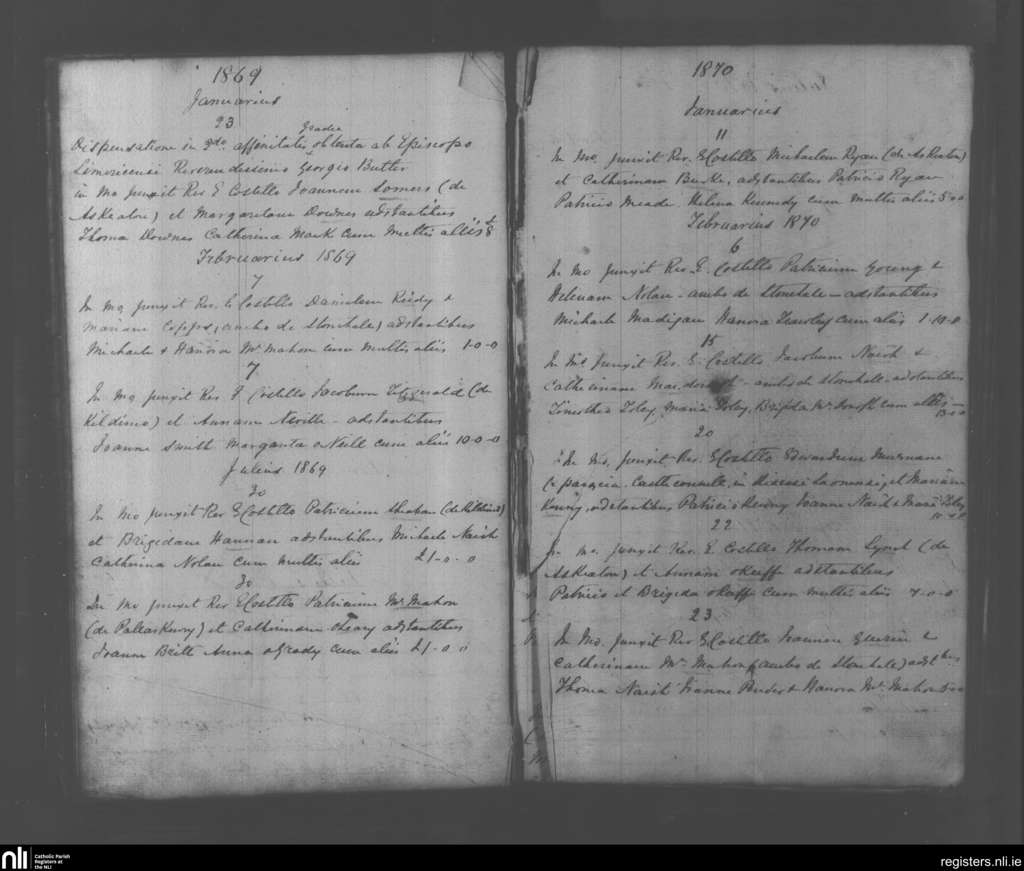 1869
Januarius
23
Dispensatione in 2do affinitatis gradu obtenta ab Episcopo
Limericensi Reverendissimo Georgio Butler
in Mo junxit Rev E Costello Joannem Somers (de
Askeaton) et Margaritam Downes adstantibus
Thoma Downes Catherina Mack cum multis aliis
Februarius 1869
7
In Mo junxit Rev. E Costello Danielem Reidy &
Mariam (ambo de Stonehale) adstantibus
Michaele & Hanora McMahon cum multis aliis 1-0-0
7
In Mo junxit Rev E Costello Jacobum Fitzgerald (de
Kildimo) et Annam Neville - adstantibus
Joanne Smith Margarita O Neill cum aliis 10-0-0
Julius 1869
30
In Mo junxit Rev E Costello Patricium (de Kildimo)
et Brigidam Hannan adstantibus Michaele Naish
Catherina Nolan cum multis aliis £1-0-0
30
In Mo junxit Rev E Costello Patricium McMahon
(de Pallaskenry) et Catherinam O'Leary adstantibus
Joanne Britt Anna O'Grady cum aliis £1-0 0
1870
Januarius
11
In Mo. junxit Rev. E Costello Michaelem Ryan (de Askeaton)
et Catherinam Burke, adstantibus Patricio Ryan
Patricio Meade Helena Kennedy cum multis aliis
Februarius 1870
6
In Mo junxit Rev. E. Costello Patricium &
Helenam Nolan - ambo de Stonehale - adstantibus
Michaele Madigan Hanora cum aliis 1-10-0
15
In Mo junxit Rev. E. Costello Jacobum Naish &
Catherinam - ambo de Stonehale - adstantibus
Timotheo Foley, Maria Foley, Brigida cum aliis
20
In Mo. junxit Rev. E Costello Edwardum Murnane
et Mariam
adstantibus Patricio Joanne Naish & Maria Foley
22
In Mo. junxit Rev. E Costello Thomam Lynch (de
Askeaton) et Annam O'Keeffe adstantibus
Patricio et Brigida O'Keeffe cum multis aliis 7-0-0
23
In Mo. junxit Rev E Costello Joannem &
Catherinam McMahon (ambo de Stonehale) adstbus
Thoma Naish Hanora McMahon
nli
Catholic Parish
Registers at
the NLI
registers.nli.ie